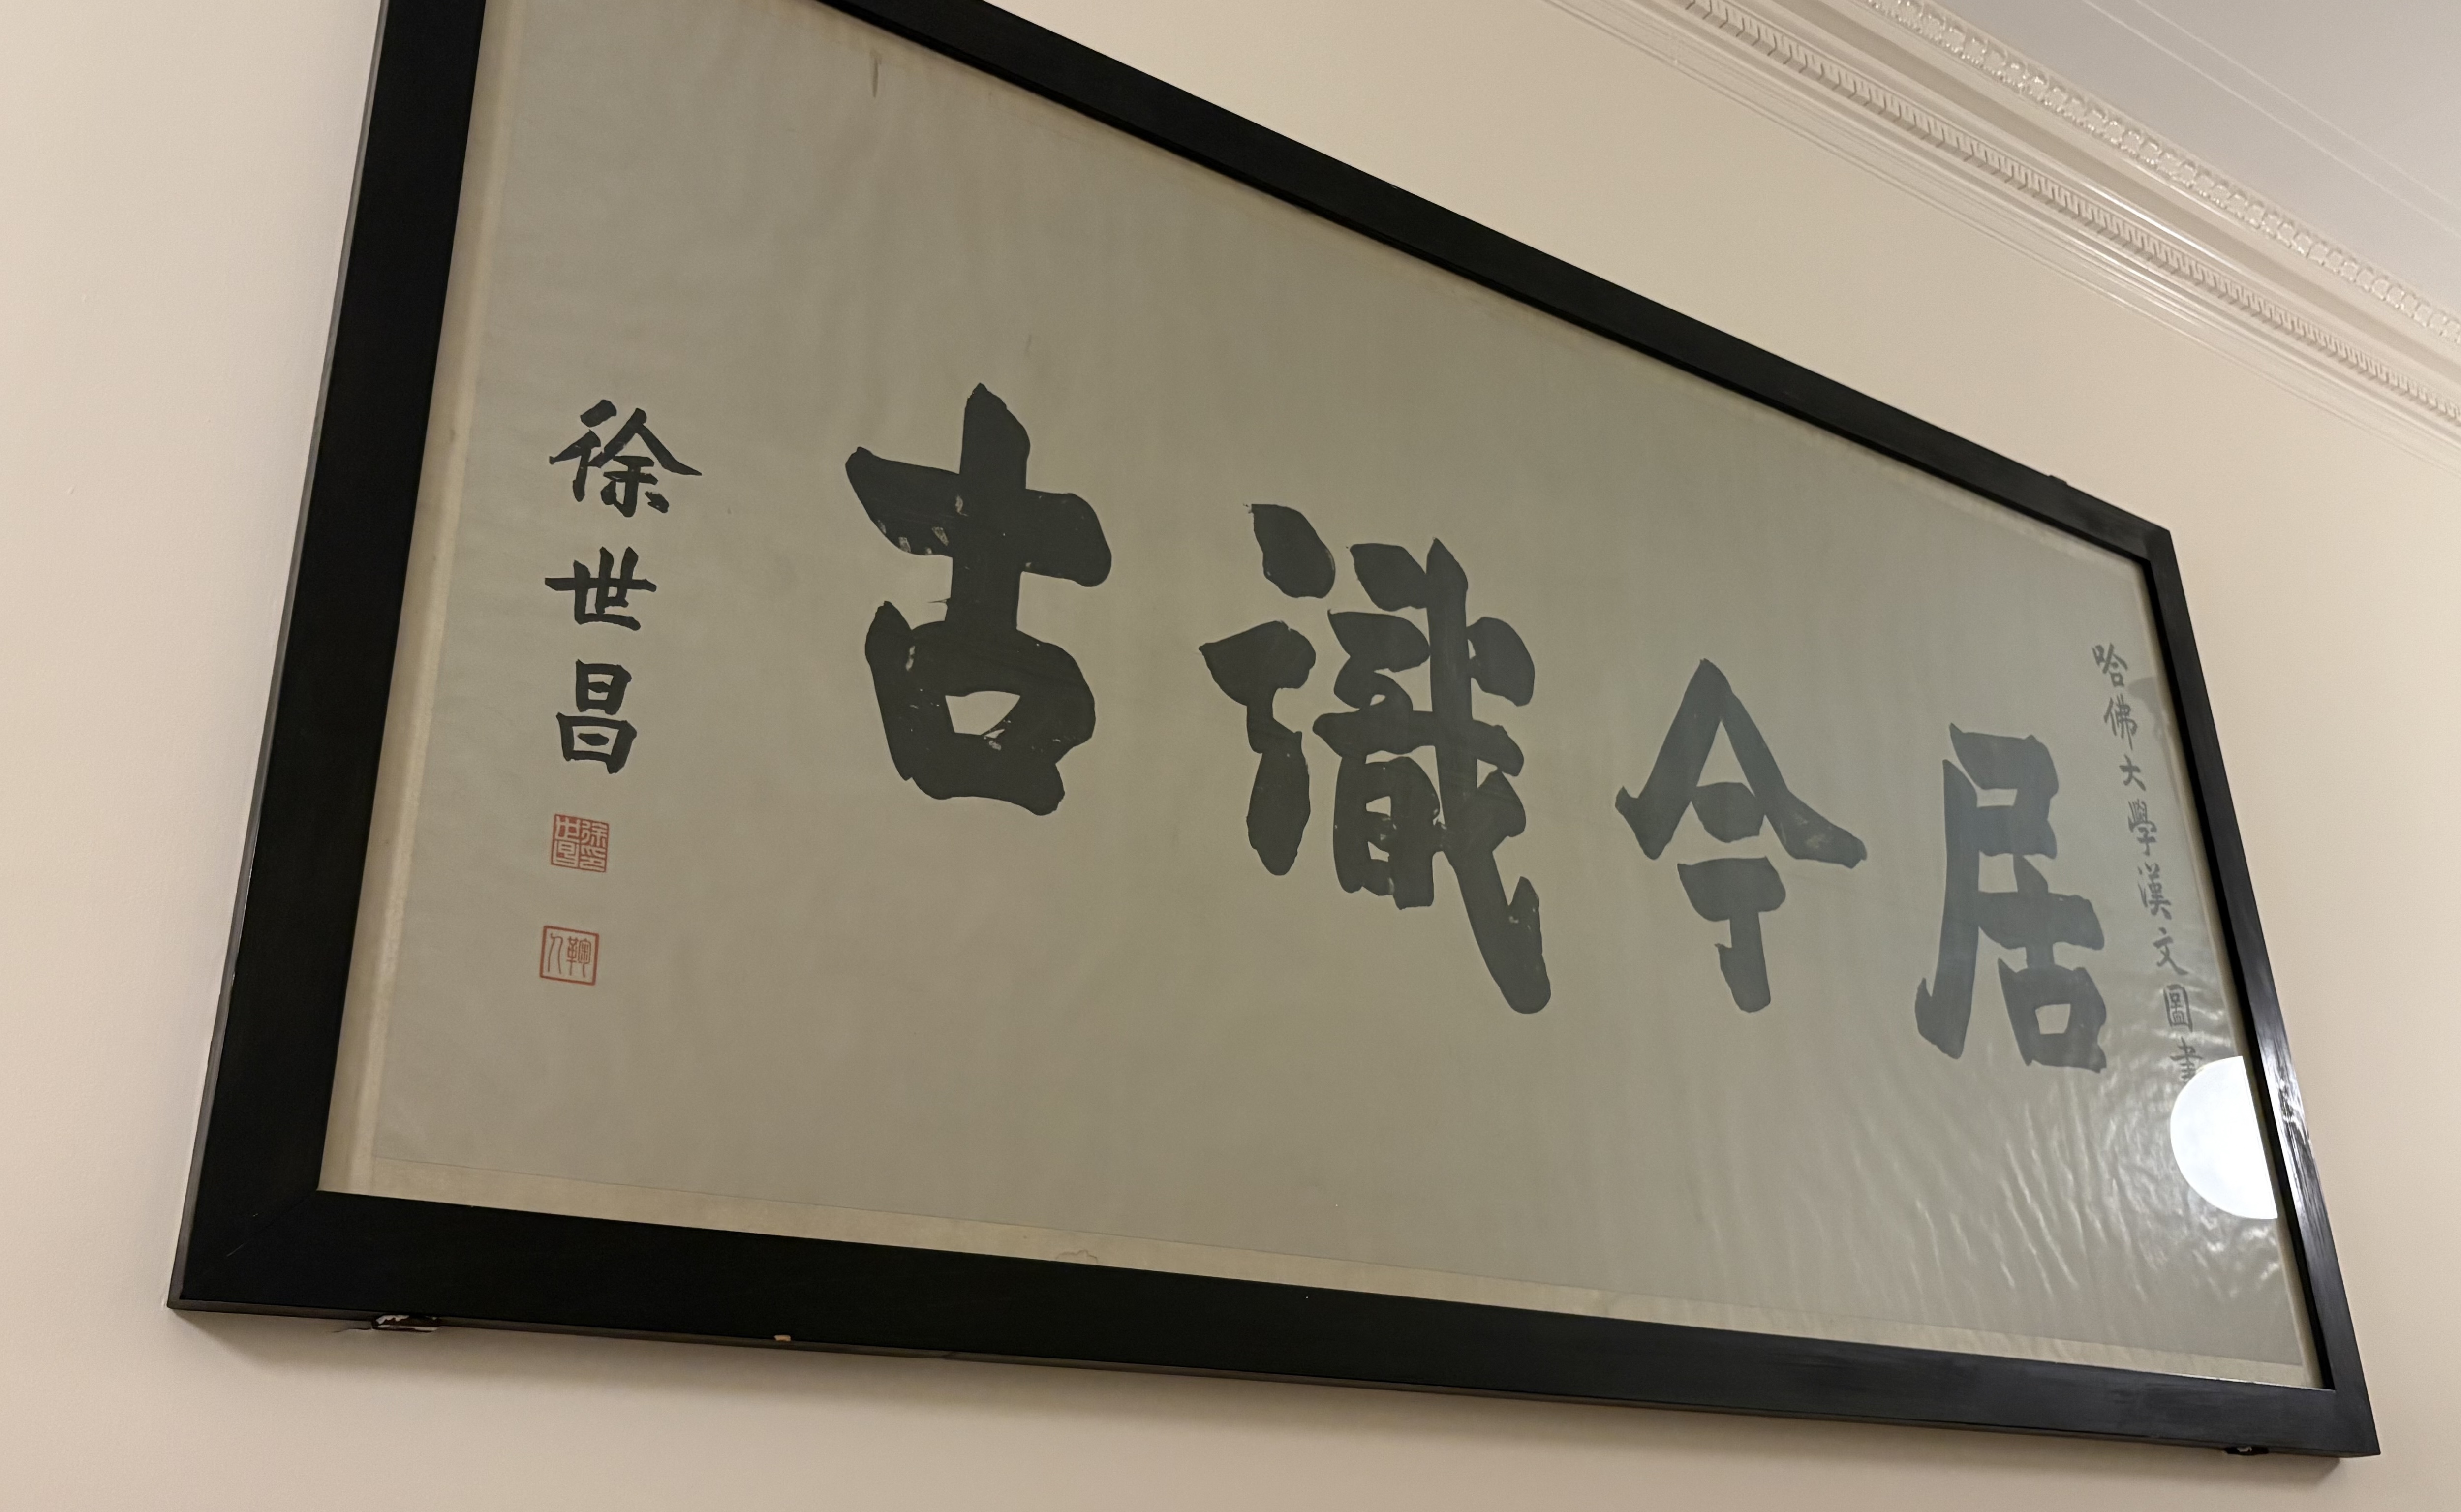 哈佛大學漢文圖書
居今識古
徐世昌
徐世昌印
鞠人